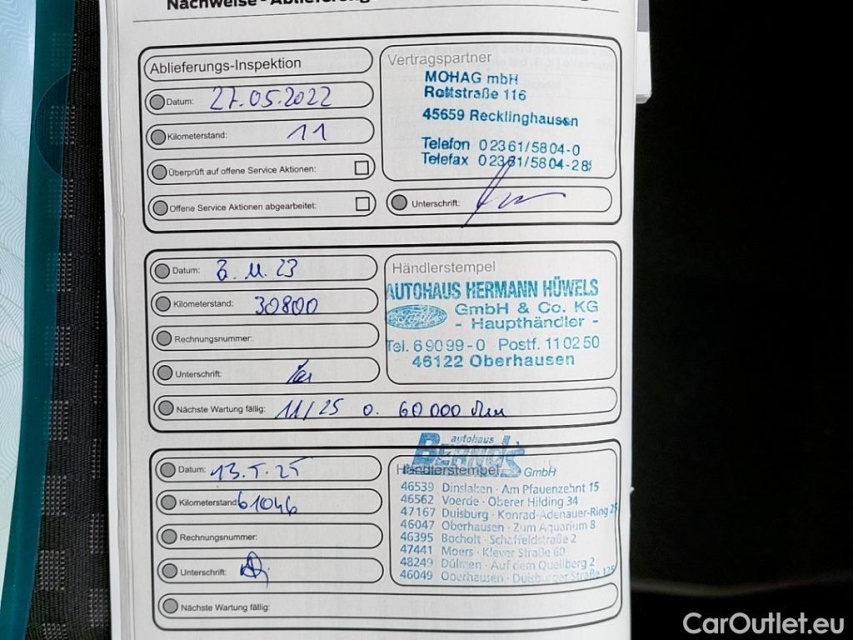 Ablieferungs-Inspektion
Datum: 27.05.2022
Kilometerstand: 11
Überprüft auf offene Service Aktionen:
Offene Service Aktionen abgearbeitet:
Vertragspartner
MOHAG mbH
Rottstraße 116
45659 Recklinghausen
Telefon 02361/5804-0
Telefax 02361/5804-28
Unterschrift:
Datum: 8.11.23
Kilometerstand: 30800
Rechnungsnummer:
Unterschrift:
Nächste Wartung fällig: 11/25 o. 60000 Km
Händlerstempel
AUTOHAUS HERMANN HÜWELS
GmbH & Co. KG
- Haupthändler -
Tel. 69099-0 Postf. 110250
46122 Oberhausen
Datum: 13.5.25
Kilometerstand: 61046
Rechnungsnummer:
Unterschrift:
Nächste Wartung fällig:
autohaus
Händlerstempel GmbH
46539 Dinslaken · Am Pfauenzehnt 15
46562 Voerde · Oberer Hilding 34
47167 Duisburg · Konrad-Adenauer-Ring
46047 Oberhausen · Zum Aquarium 8
46395 Bocholt · Schaffeldstraße 2
47441 Moers · Klever Straße 60
48249 Dülmen · Auf dem Quellberg 2
46049 Oberhausen · Duisburger Straße
CarOutlet.eu